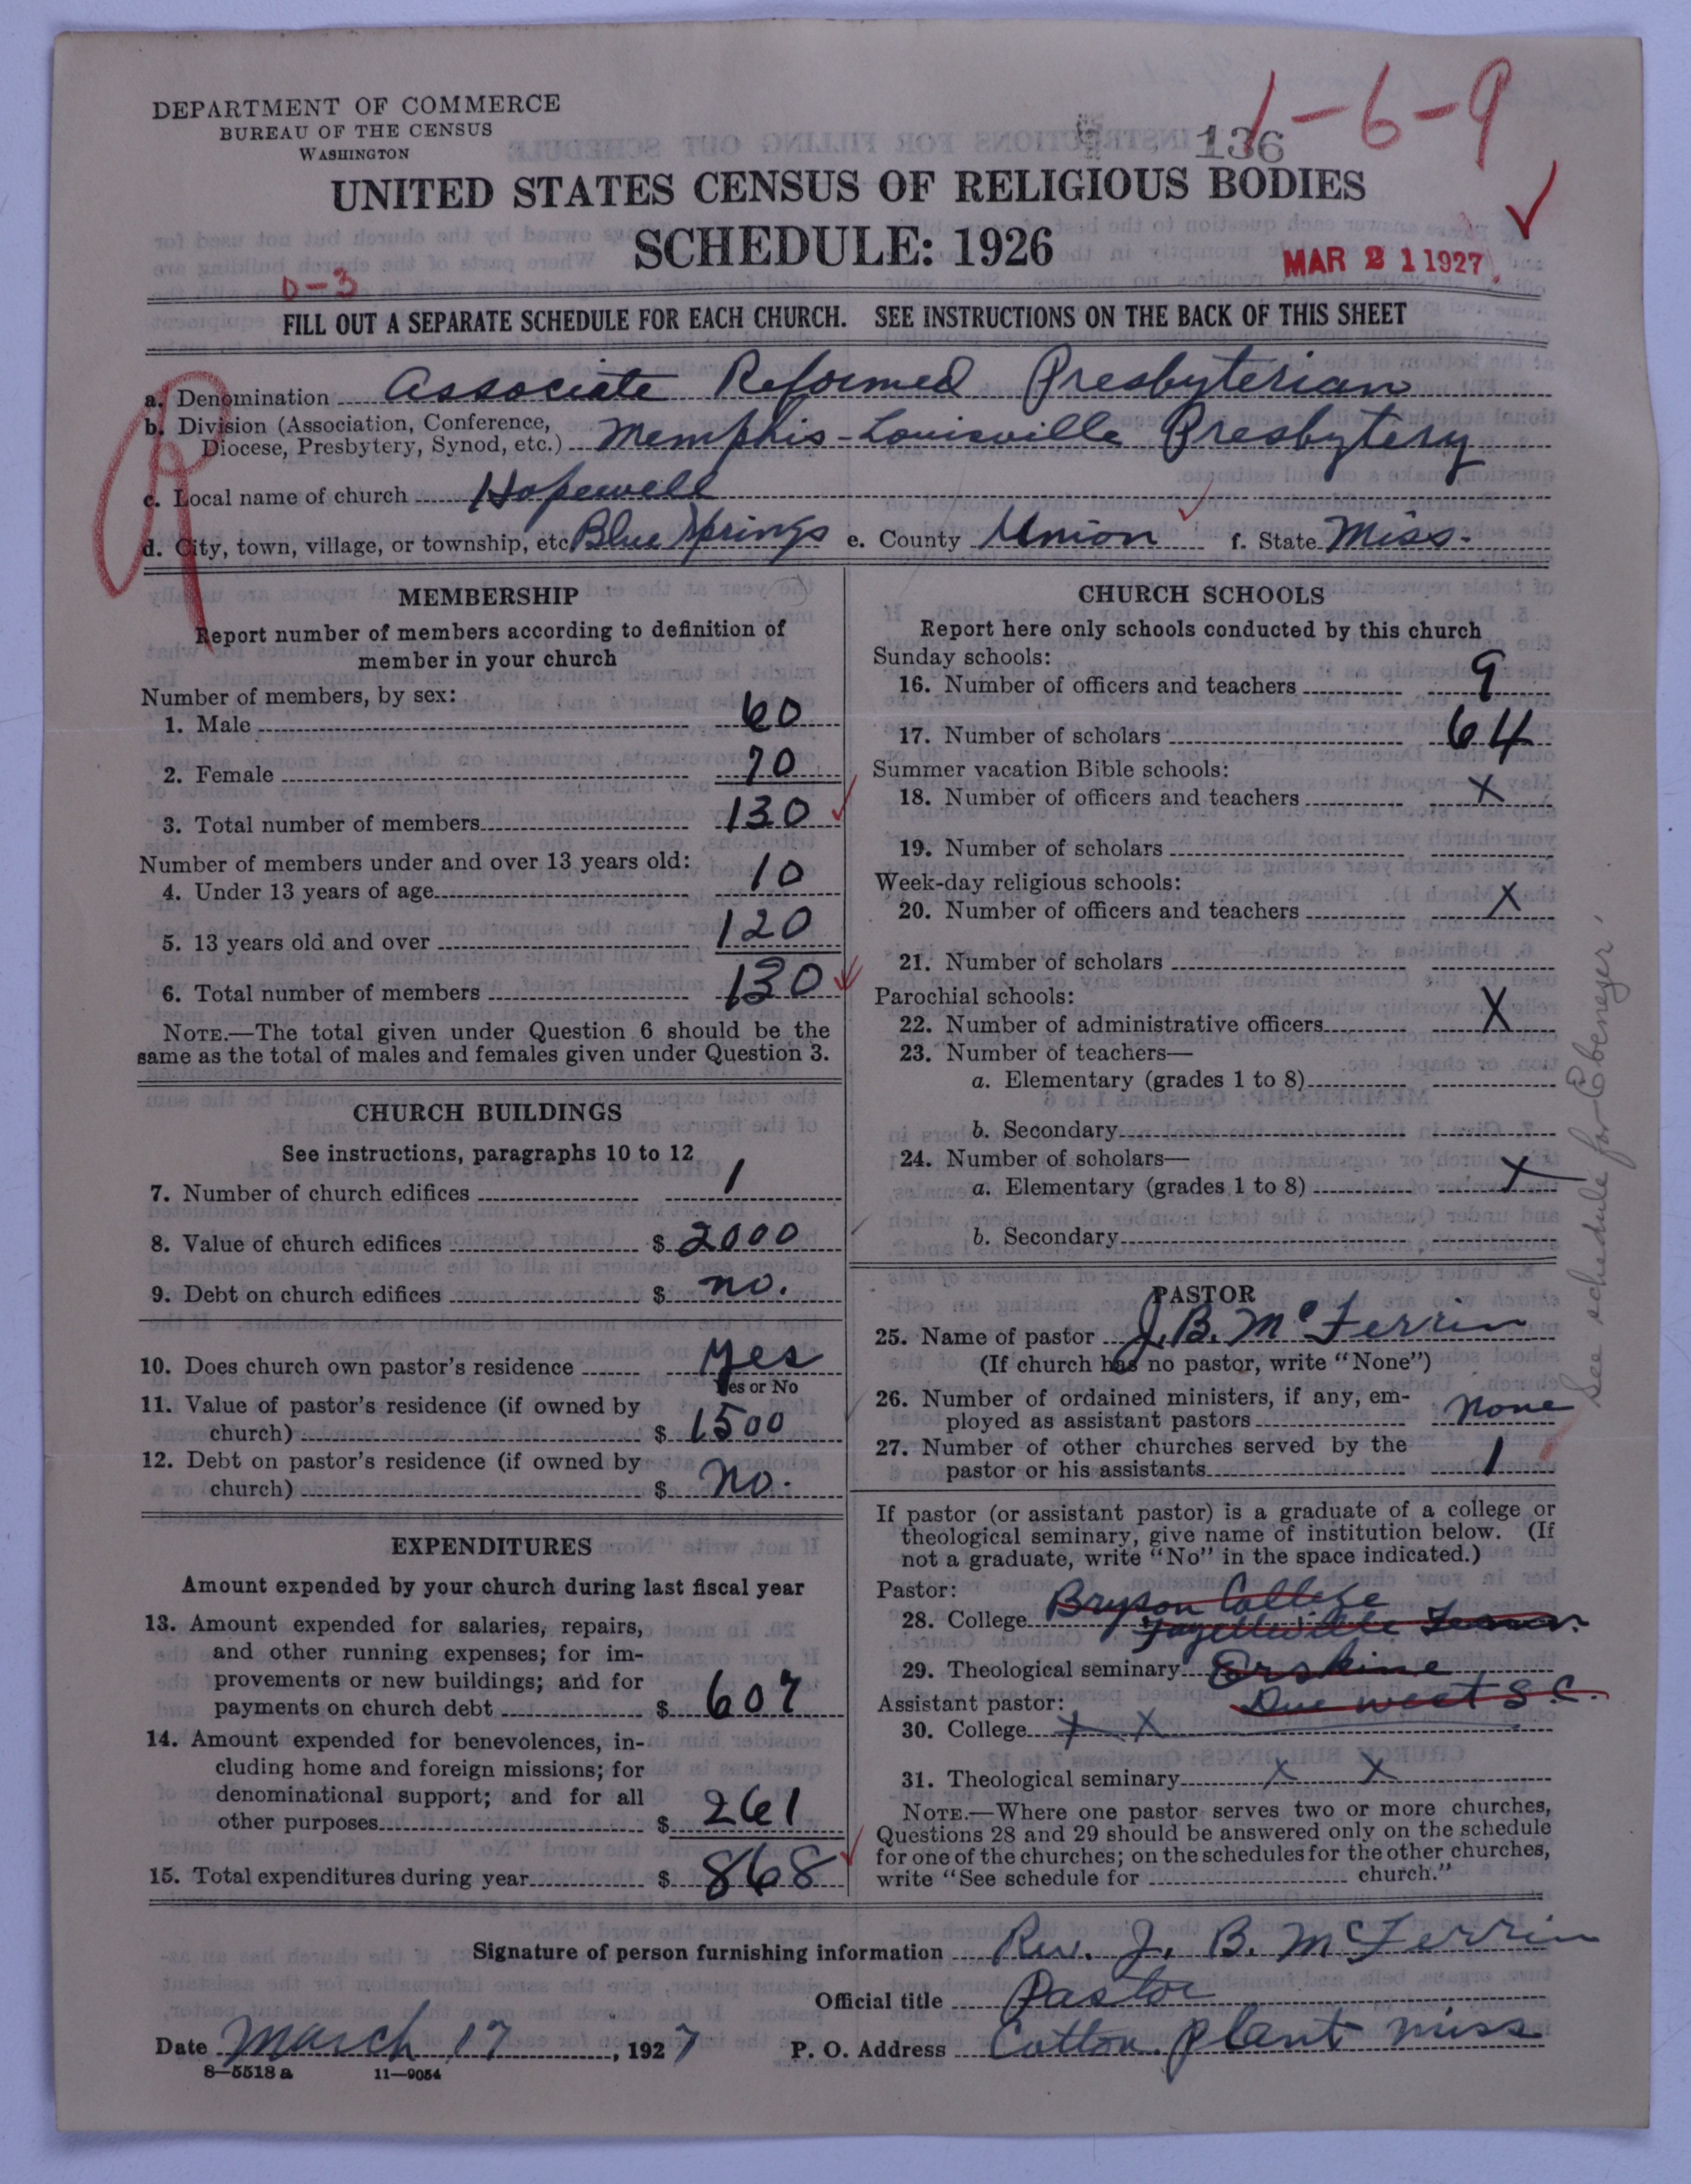 DEPARTMENT OF COMMERCE
BUREAU OF THE CENSUS
WASHINGTON
136
1-6-9
UNITED STATES CENSUS OF RELIGIOUS BODIES
SCHEDULE: 1926
MAR 21 1927
D-3
FILL OUT A SEPARATE SCHEDULE FOR EACH CHURCH. SEE INSTRUCTIONS ON THE BACK OF THIS SHEET
a. Denomination Associate Reformed Presbyterian
b. Division (Association, Conference,
Diocese, Presbytery, Synod, etc.) Memphis-Louisville Presbytery
c. Local name of church Hopewell
d. City, town, village, or township, etc Blue Springs e. County Union f. State Miss.
MEMBERSHIP
Report number of members according to definition of
member in your church
Number of members, by sex:
1. Male 60
2. Female 70
3. Total number of members 130
Number of members under and over 13 years old:
4. Under 13 years of age 10
5. 13 years old and over 120
6. Total number of members 130
NOTE.—The total given under Question 6 should be the
same as the total of males and females given under Question 3.
CHURCH BUILDINGS
See instructions, paragraphs 10 to 12
7. Number of church edifices 1
8. Value of church edifices $ 2000
9. Debt on church edifices $ no.
10. Does church own pastor's residence yes
Yes or No
11. Value of pastor's residence (if owned by
church) $ 1500
12. Debt on pastor's residence (if owned by
church) $ No.
EXPENDITURES
Amount expended by your church during last fiscal year
13. Amount expended for salaries, repairs,
and other running expenses; for im-
provements or new buildings; and for
payments on church debt $ 607
14. Amount expended for benevolences, in-
cluding home and foreign missions; for
denominational support; and for all
other purposes $ 261
15. Total expenditures during year $ 868
CHURCH SCHOOLS
Report here only schools conducted by this church
Sunday schools:
16. Number of officers and teachers 9
17. Number of scholars 64
Summer vacation Bible schools:
18. Number of officers and teachers X
19. Number of scholars
Week-day religious schools:
20. Number of officers and teachers X
21. Number of scholars
Parochial schools:
22. Number of administrative officers X
23. Number of teachers—
a. Elementary (grades 1 to 8)
b. Secondary
24. Number of scholars—
a. Elementary (grades 1 to 8) X
b. Secondary
PASTOR
25. Name of pastor J. B. McFerrin
(If church has no pastor, write "None")
26. Number of ordained ministers, if any, em-
ployed as assistant pastors None
27. Number of other churches served by the
pastor or his assistants 1
If pastor (or assistant pastor) is a graduate of a college or
theological seminary, give name of institution below. (If
not a graduate, write "No" in the space indicated.)
Pastor:
28. College Bryson College
Fayetteville Tenn.
29. Theological seminary Erskine
Due West S.C.
Assistant pastor:
30. College X X
31. Theological seminary X X
NOTE.—Where one pastor serves two or more churches,
Questions 28 and 29 should be answered only on the schedule
for one of the churches; on the schedules for the other churches,
write "See schedule for church."
See schedule for Ebenezer.
Signature of person furnishing information Rev. J. B. McFerrin
Official title Pastor
Date March 17, 1927 P. O. Address Cotton Plant Miss
8-5518 a 11-9054